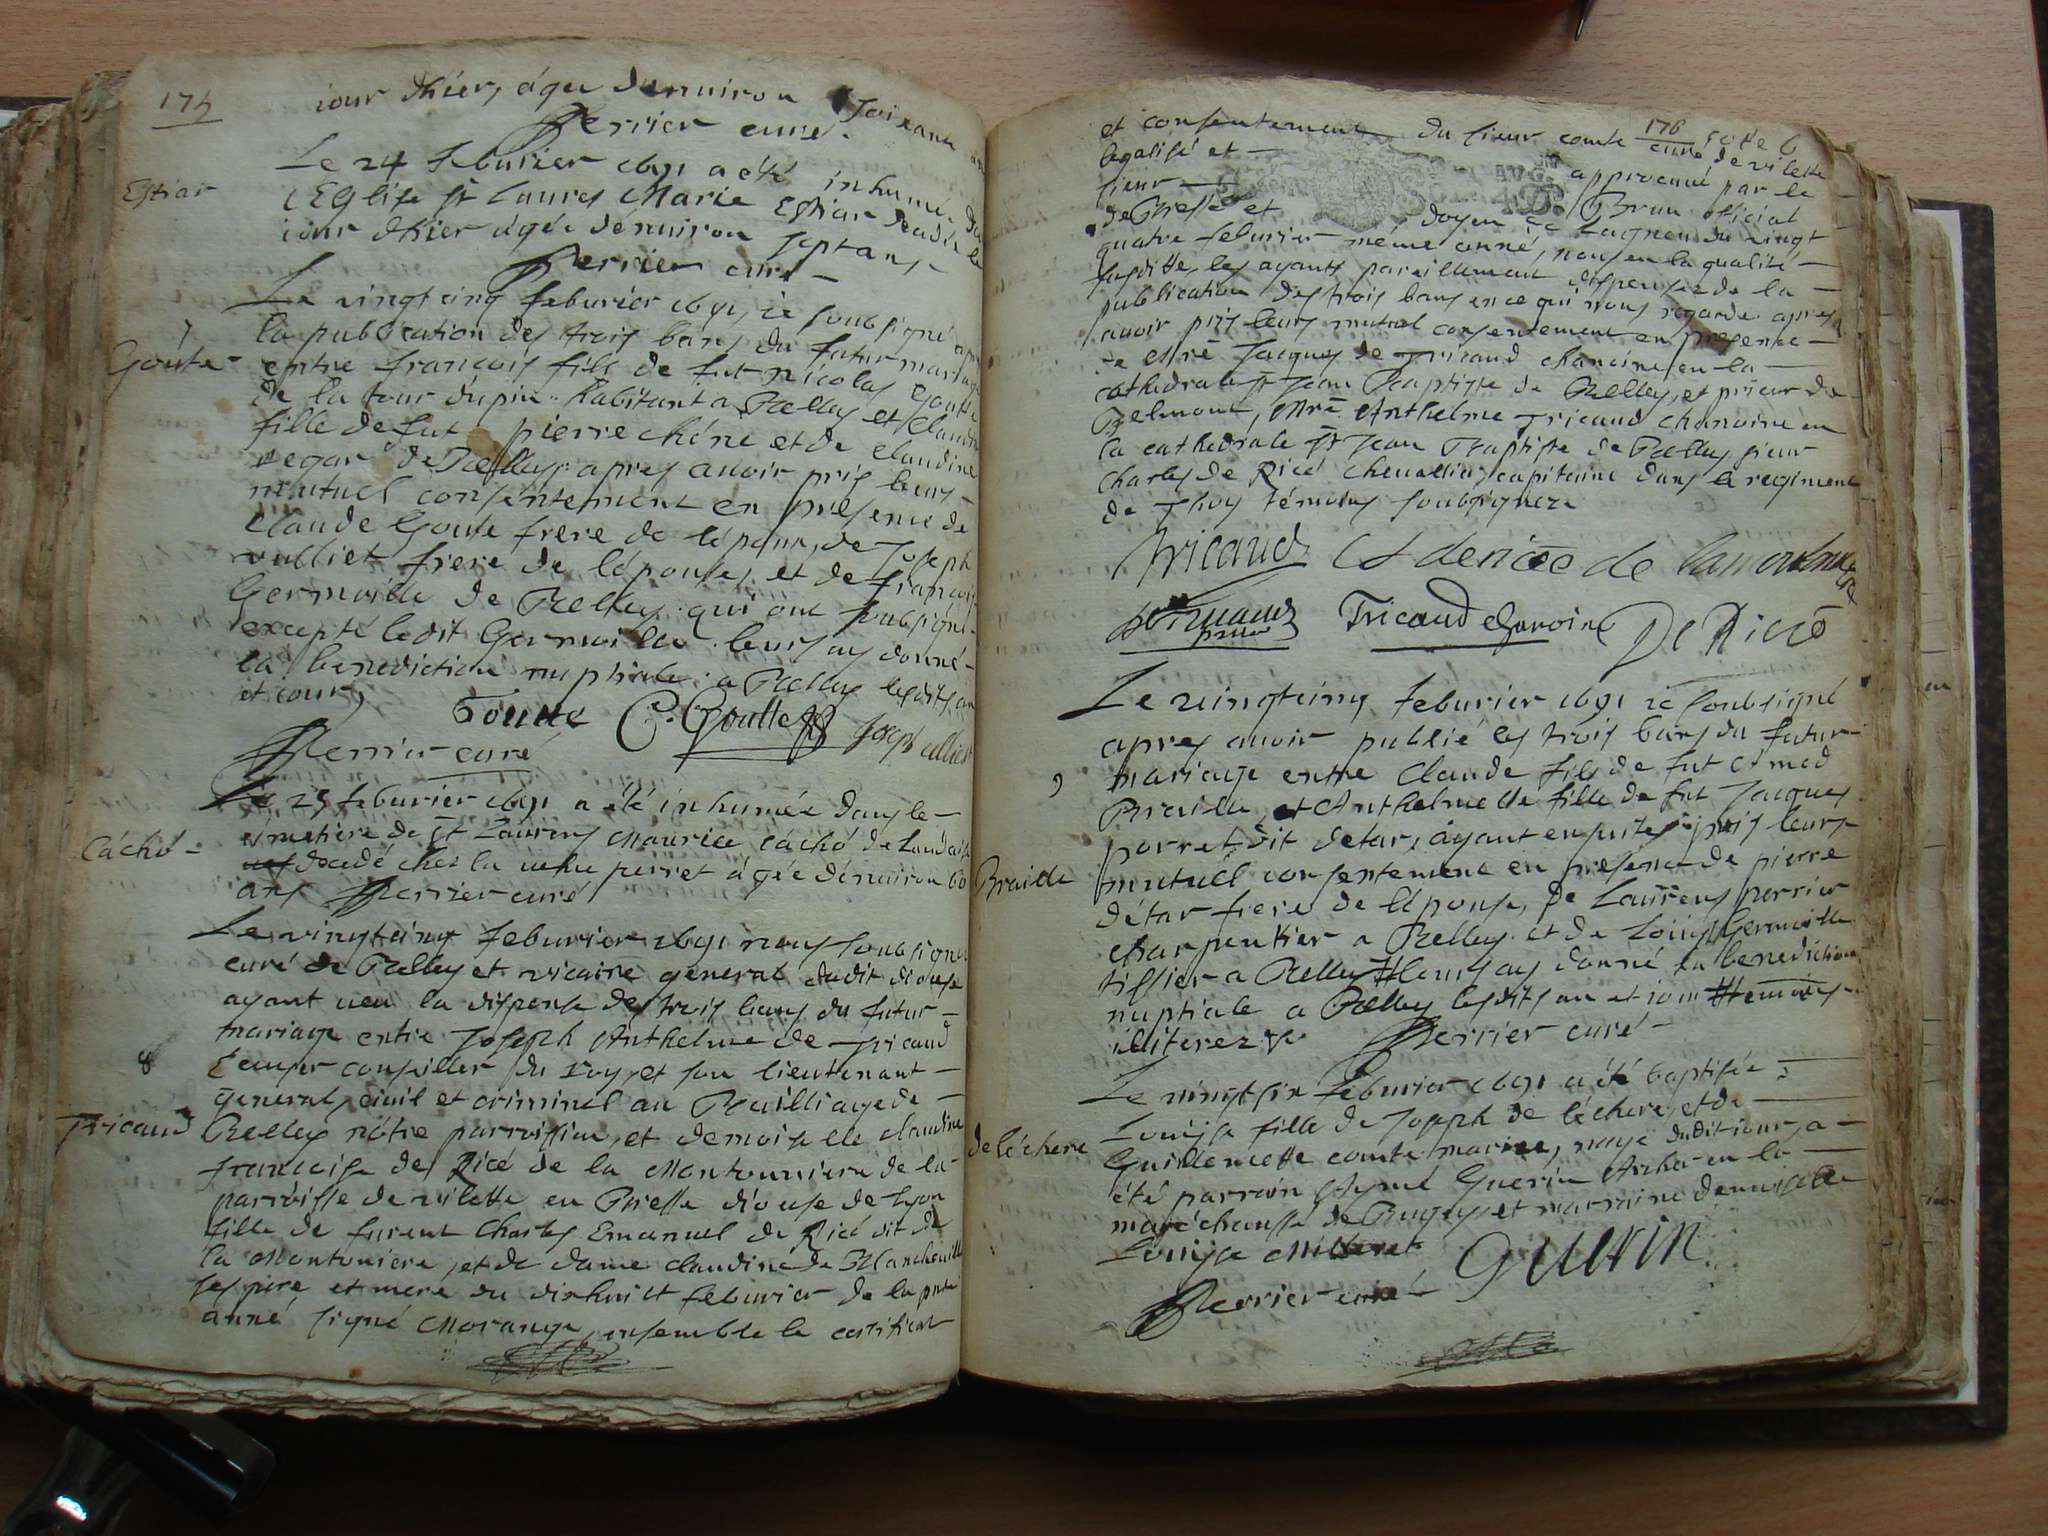 175
iour d'hier, agée d'enuiron soixante an
Perrier curé
Le 24 feburier 1691 a été inhumée dans
Estiar
l'Eglise st Laurens Marie Estiar decedée le
iour d'hier agée d'énuiron sept ans
Perrier curé
Le vingtcinq feburier 1691, ie soubsigné apres
la publication des trois bans du futur mariage
7
Goute
entre françois fils de fut nicolas Goute
de la tour du pin habitant a Belley et Claudine
fille de fut pierre chéne et de claudine
de Belley apres auoir pris leurs
mutuel consentement en presence de
claude Goute frere de l'époux, de Joseph
vulliet frere de l'épouse, et de françois
Germoille de Belley qui ont soubsigné
excepté ledit Germoille leurs ay donné
la benediction nuptiale a Belley lesdits an
et iour,
Goutte C. Goutte Josep ulliet
Perrier curé
Le 25 feburier 1691 a été inhumée dans le
cimetiere de st Laurens Maurice cáchó de
Cáchó
decedé ches la uefue perret agée d'énuiron 60
ans Perrier curé
Le vingtcinq feburier 1691 nous soubsigné
curé de Belley et vicaire general dudit diocese
ayant ueu la dispense des trois bans du futur
mariage entre Joseph Anthelme de Tricaud
8
Ecuyer conseiller du roy, et son lieutenant
general, ciuil et criminel au Bailliage de
Tricaud
Belley nótre parroissien, et demoiselle claudine
françoise de Ricé de la Montouniere de la
parroisse de vilette en Bresse diocese de Lyon
fille de furent Charles Emanuel de Ricé dit de
la Montoniere, et de dame claudine de
ses pere et mere du dixhuict feburier de la pnte
anné signé Morange, ensemble le certificat
176
et consentement du sieur comte curé de vilette
legalisé et approuué par le
sieur Brun official
de Bresse et doyen de Lagneu du vingt
quatre feburier méme anné, nous en la qualité
susditte, les ayants pareillement dispensé de la
publication des trois bans en ce qui nous regarde apres
auoir pris leurs mutuel consentement en presence
de Jacques de Tricaud chanoine en la
cathedrale st Jean Baptiste de Belley, et prieur de
Belmont, Mre Anthelme Tricaud chanoine en
la cathedrale st Jean Baptiste de Belley sieur
Charles de Ricé cheuallier, capitaine dans le regiment
de témoins soubsignez
Tricaud Cf dericée de
prieur Tricaud chanoine De Ricé
Le vingtcinq feburier 1691 ie soubsigné
apres auoir publié les trois bans du futur
9
mariage entre Claude fils de fut
Braille, et Anthelmette fille de fut Jacques
porret dit detar, áyant ensuites pris leurs
Braille
mutuel consentement en presence de pierre
détar frere de l'épouse, de Laurens perrier
charpentier a Belley et de Louis Germoille
tissier a Belley leurs ay donné la benediction
nuptiale a Belley lesdits an et iour témoins
illiterez Perrier curé
Le vingtsix feburier 1691 a été baptisée
Louÿse fille de Joseph de léchere, et de
de léchere
Guillemette comte mariez, nayé dudit iour, a
été parrain Aymé Guerin Archer en la
maréchaussé de Bugey et marraine demoiselle
Louÿse Milleret Guerin
Perrier curé